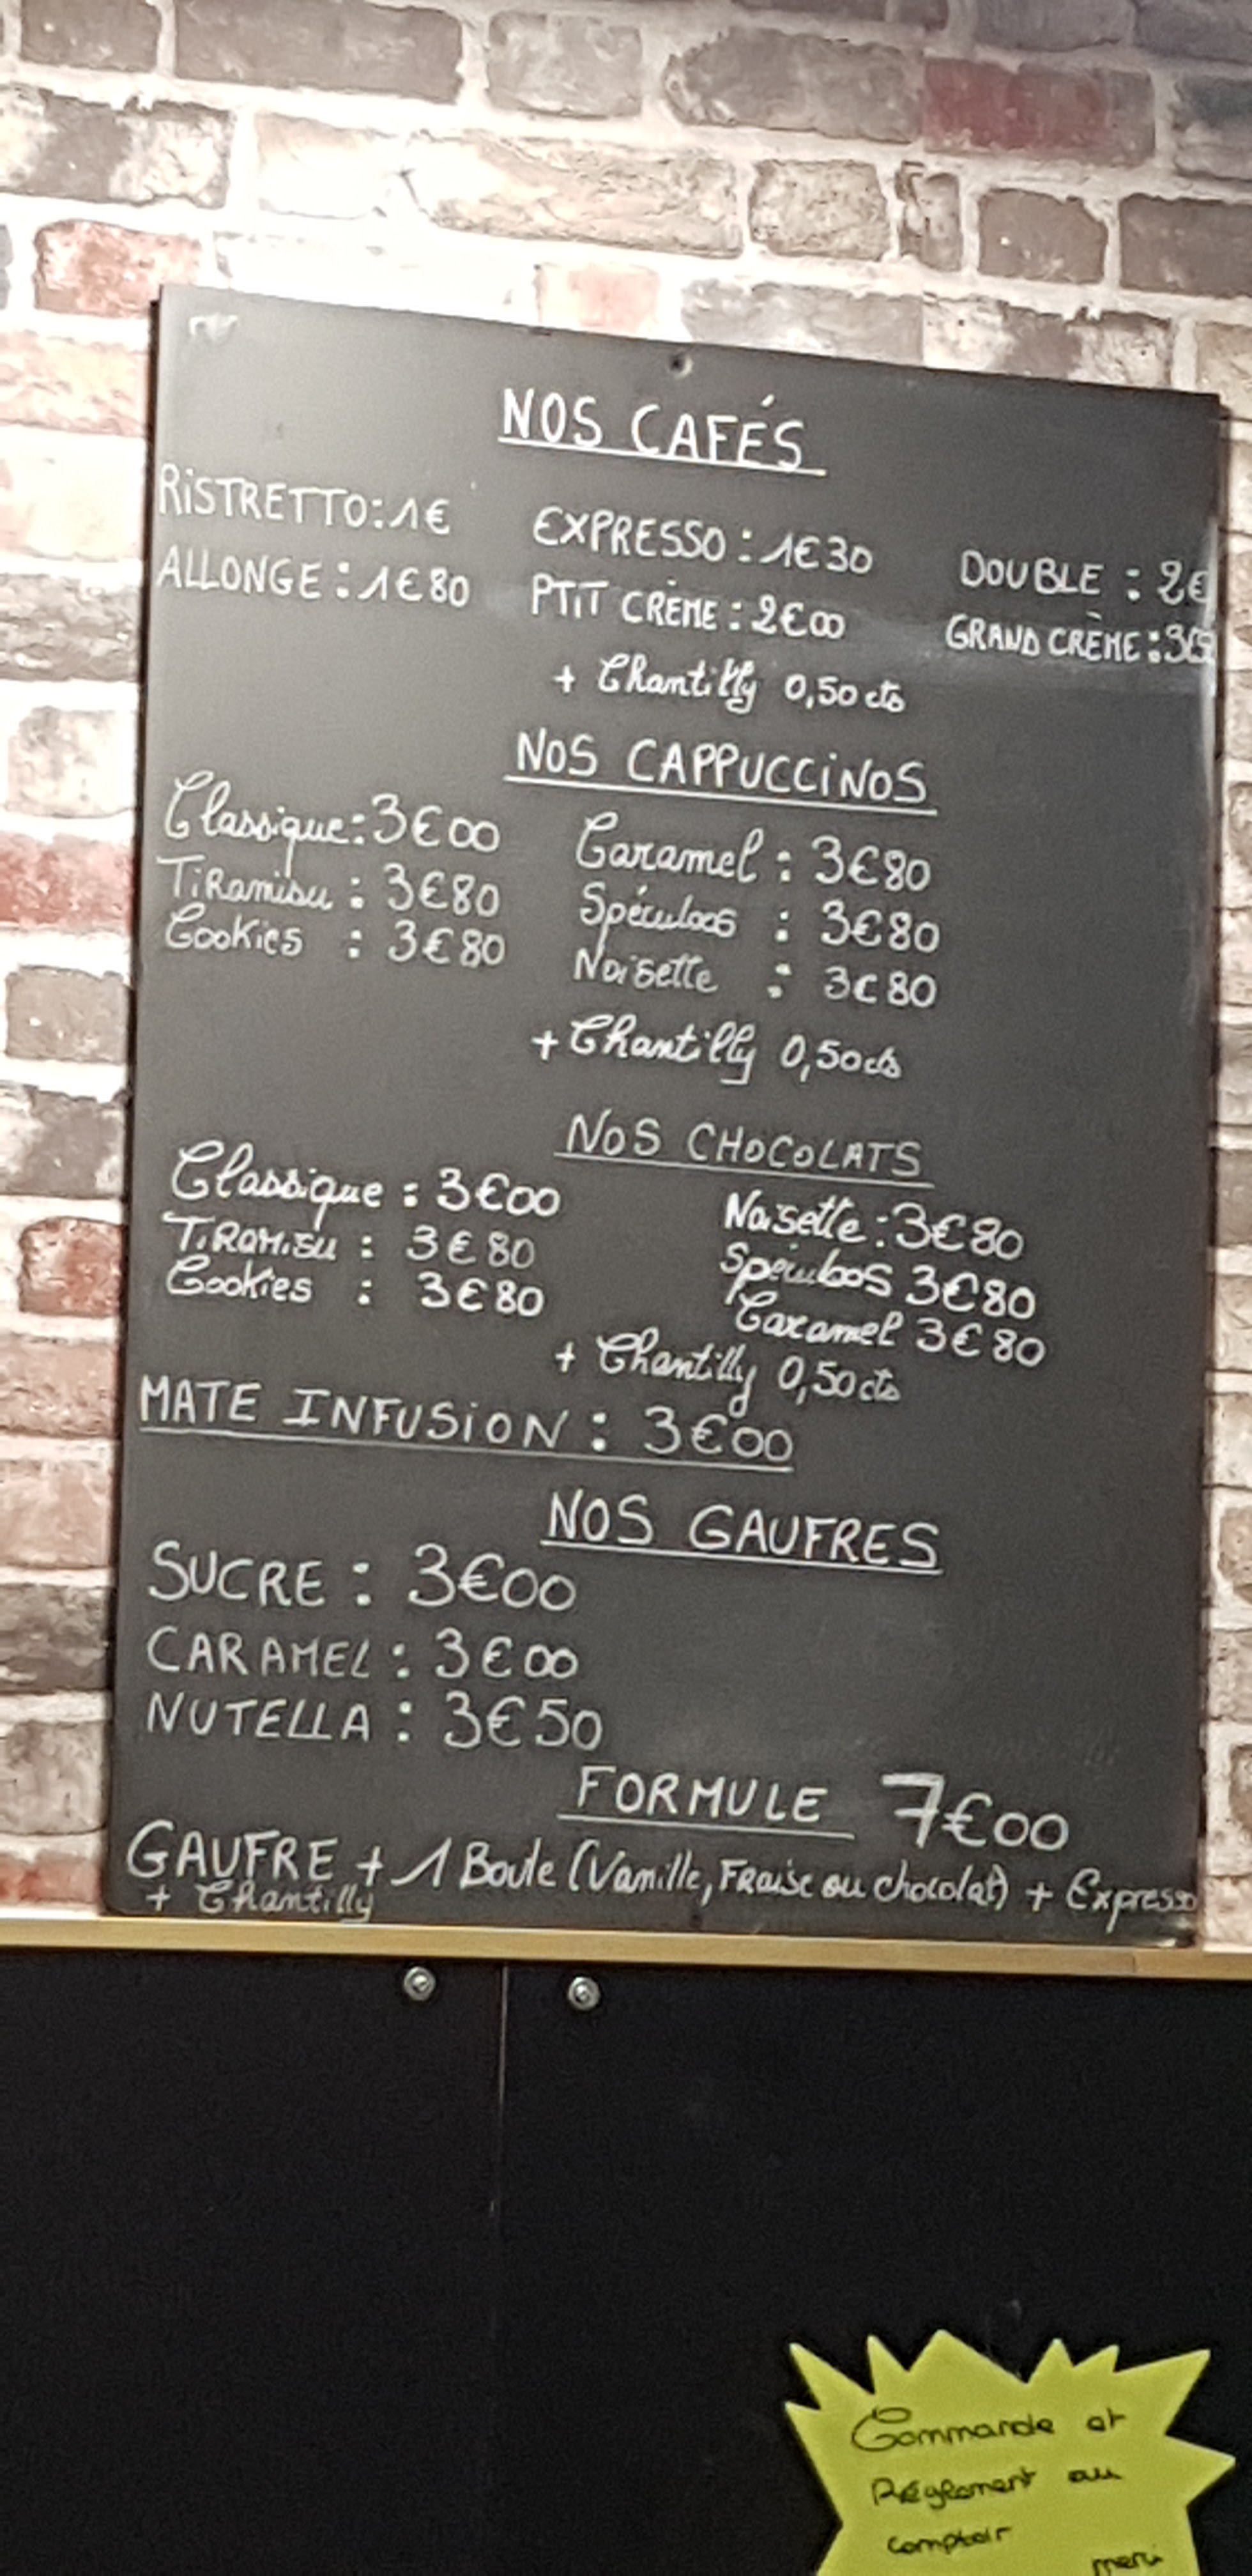 NOS CAFÉS
RiSTRETTO: 1€ EXPRESSO : 1€30 DOUBLE : 2€
ALLONGE : 1€80 PTiT CRÈME : 2€00 GRAND CRÈME :
+ Chantilly 0,50 cts
NOS CAPPUCCiNOS
Classique: 3€00 Caramel : 3€80
TiRamisu : 3€80 Spéculoos : 3€80
Cookies : 3€80 Noisette : 3€80
+ Chantilly 0,50 cts
NOS CHOCOLATS
Classique : 3€00 Noisette : 3€80
TiRaMisu : 3€80 Spéculoos 3€80
Cookies : 3€80 Caramel 3€80
+ Chantilly 0,50 cts
MATE INFUSiON : 3€00
NOS GAUFRES
SUCRE : 3€00
CARAMEL : 3€00
NUTELLA : 3€50
FORMULE 7€00
GAUFRE + 1 Boule (Vanille, Fraise ou chocolat) + Expresso
+ Chantilly
Commande et
Réglement au
comptoir
merci